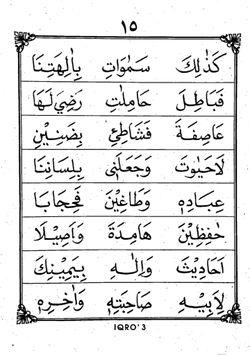 ١٥
كَذٰلِكَ سَمٰوَاتٍ بِاٰلِهَتِنَا
فَبَاطِلَ حَامِلٰتِ رَضِيَ لَهَا
عَاصِفَةَ فَشَاطِئِ بِضَنِيْنٍ
لَاحَيٰوتَ وَجَعَلَنٰى بِلِسَانِنَا
عِبَادِهٖ وَطَاغِيْنَ فَحِجَابًا
حٰفِظِيْنَ هَامِدَةَ وَاَصِيْلًا
اَحَادِيْثَ وَاِلٰهِ بِيَمِيْنِكَ
لِاَبِيْهِ صَاحِبَتِهٖ وَاٰخِرِهٖ
IQRO'3